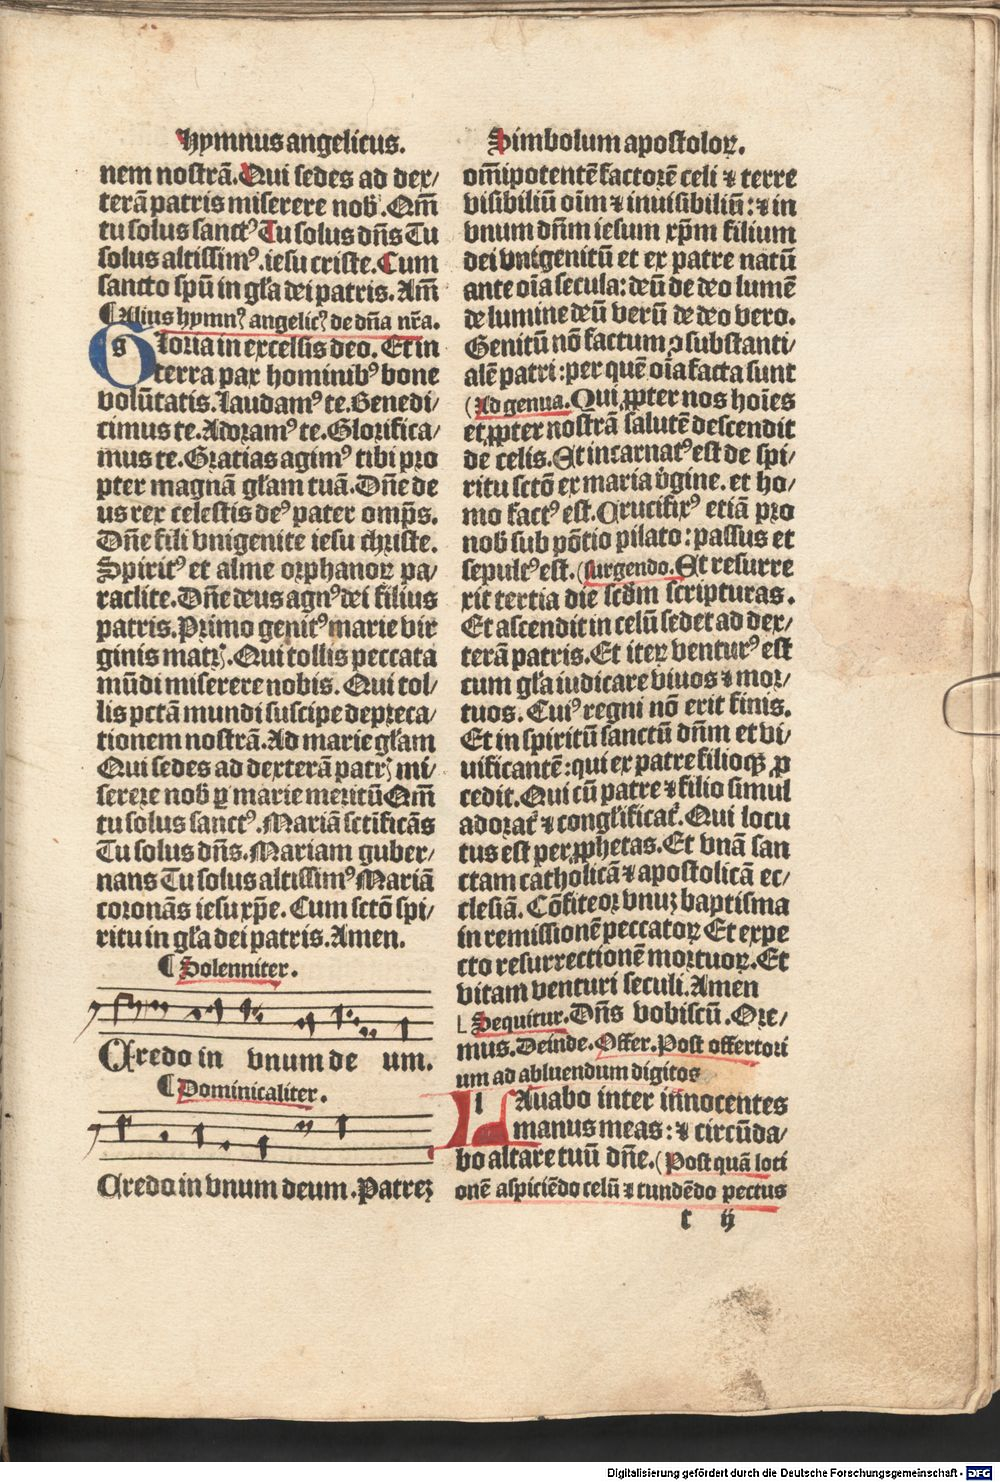 Hymnus angelicus.
nem nostrā. Qui sedes ad dex/
terā patris miserere nob̕. Qm̄
tu solus sanctꝰ Tu solus dn̄s Tu
solus altissimꝰ. iesu criste. Cum
sancto spū in gl̕a dei patris. Am̄
¶ Alius hymnꝰ angelicꝰ de dn̄a nr̄a.
Gloria in excelsis deo. Et in
terra pax hominibꝰ bone
volūtatis. Laudamꝰ te. Benedi/
cimus te. Adoramꝰ te. Glorifica/
mus te. Gratias agimꝰ tibi pro
pter magnā gl̕am tuā. Dn̄e de
us rex celestis deꝰ pater omp̄s.
Dn̄e fili vnigenite iesu christe.
Spiritꝰ et alme orphanoꝝ pa/
raclite. Dn̄e deus agnꝰ dei filius
patris. Primo genitꝰ marie vir
ginis matrꝭ. Qui tollis peccata
mūdi miserere nobis. Qui tol/
lis pctā mundi suscipe depreca/
tionem nostrā. Ad marie gl̕am
Qui sedes ad dexterā patrꝭ mi/
serere nob̕ ꝑ marie meritū Qm̄
tu solus sanctꝰ. Mariā sctificās
Tu solus dn̄s. Mariam guber/
nans Tu solus altissimꝰ Mariā
coronās iesu xp̄e. Cum sctō spi/
ritu in gl̕a dei patris. Amen.
¶ Solenniter.
Credo in vnum de um.
¶ Dominicaliter.
Credo in vnum deum. Patreꝫ
Simbolum apostoloꝝ.
om̄ipotentē factorē celi ⁊ terre
visibiliū oīm ⁊ inuisibiliū: ⁊ in
vnum dn̄m iesum xp̄m filium
dei vnigenitū et ex patre natū
ante oīa secula: deū de deo lumē
de lumine deū verū de deo vero.
Genitū nō factum ꝯsubstanti/
alē patri: per quē oīa facta sunt
(Ad genua. Qui ꝓpter nos hoīes
et ꝓpter nostrā salutē descendit
de celis. Et incarnatꝰ est de spi/
ritu sctō ex maria v̕gine. et ho/
mo factꝰ est. Crucifixꝰ etiā pro
nob̕ sub pōtio pilato: passus et
sepultꝰ est. (surgendo. Et resurre
xit tertia die scd̄m scripturas.
Et ascendit in celū sedet ad dex/
terā patris. Et iteꝝ venturꝰ est
cum gl̕a iudicare viuos ⁊ mor/
tuos. Cuiꝰ regni nō erit finis.
Et in spiritū sanctū dn̄m et vi/
uificantē: qui ex patre filioqꝫ ꝓ
cedit. Qui cū patre ⁊ filio simul
adorat̕ ⁊ conglīficat̕. Qui locu
tus est per ꝓphetas. Et vnā san
ctam catholicā ⁊ apostolicā ec/
clesiā. Cōfiteor vnuꝫ baptisma
in remissionē peccatoꝝ Et expe
cto resurrectionē mortuoꝝ. Et
vitam venturi seculi. Amen
Sequitur. Dn̄s vobiscū. Ore/
mus. Deinde. Offer. Post offertori
um ad abluendum digitos
Lauabo inter in̄nocentes
manus meas: ⁊ circūda/
bo altare tuū dn̄e. (Post quā loti
onē aspiciēdo celū ⁊ tundēdo pectus
t ij
Digitalisierung gefördert durch die Deutsche Forschungsgemeinschaft - DFG